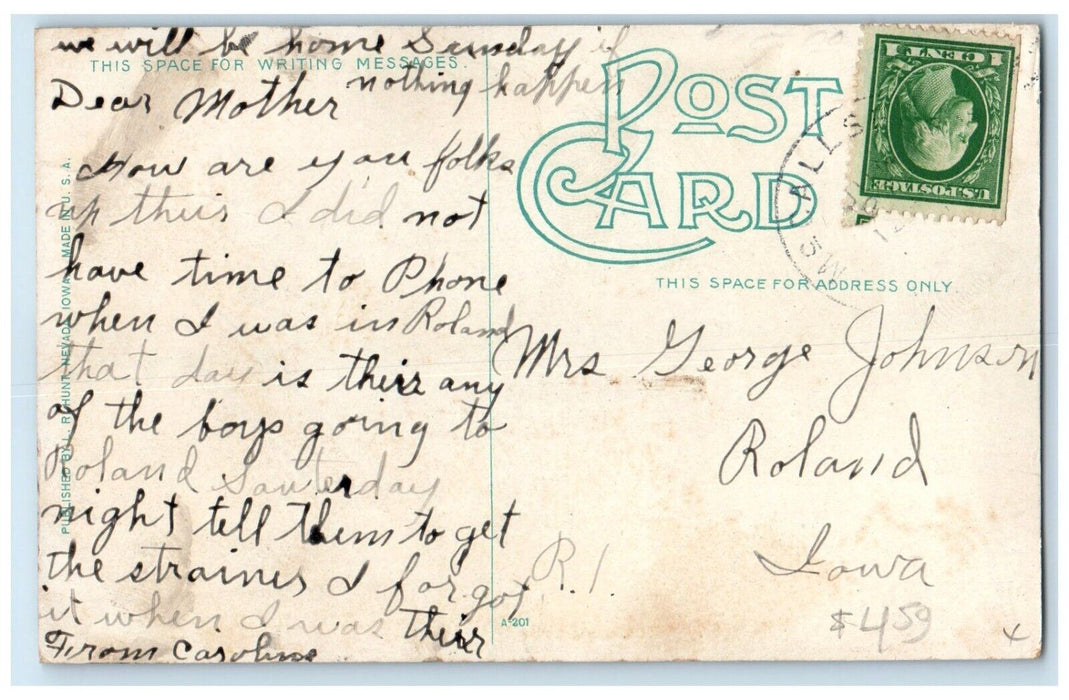 we will be home Sunday if
nothing happen
THIS SPACE FOR WRITING MESSAGES.
Dear Mother
How are you folks
up their I did not
have time to Phone
when I was in Roland
that day is their any
of the boys going to
Roland Sauterday
night tell them to get
the strainer I forgot
it when I was their
From Caroline
PUBLISHED BY L. R. HUNT, NEVADA, IOWA. MADE IN U.S.A.
POST CARD
THIS SPACE FOR ADDRESS ONLY.
1 CENT 1
U.S. POSTAGE
Mrs George Johnson
Roland
Iowa
R. 1.
$4 59
x
A-201